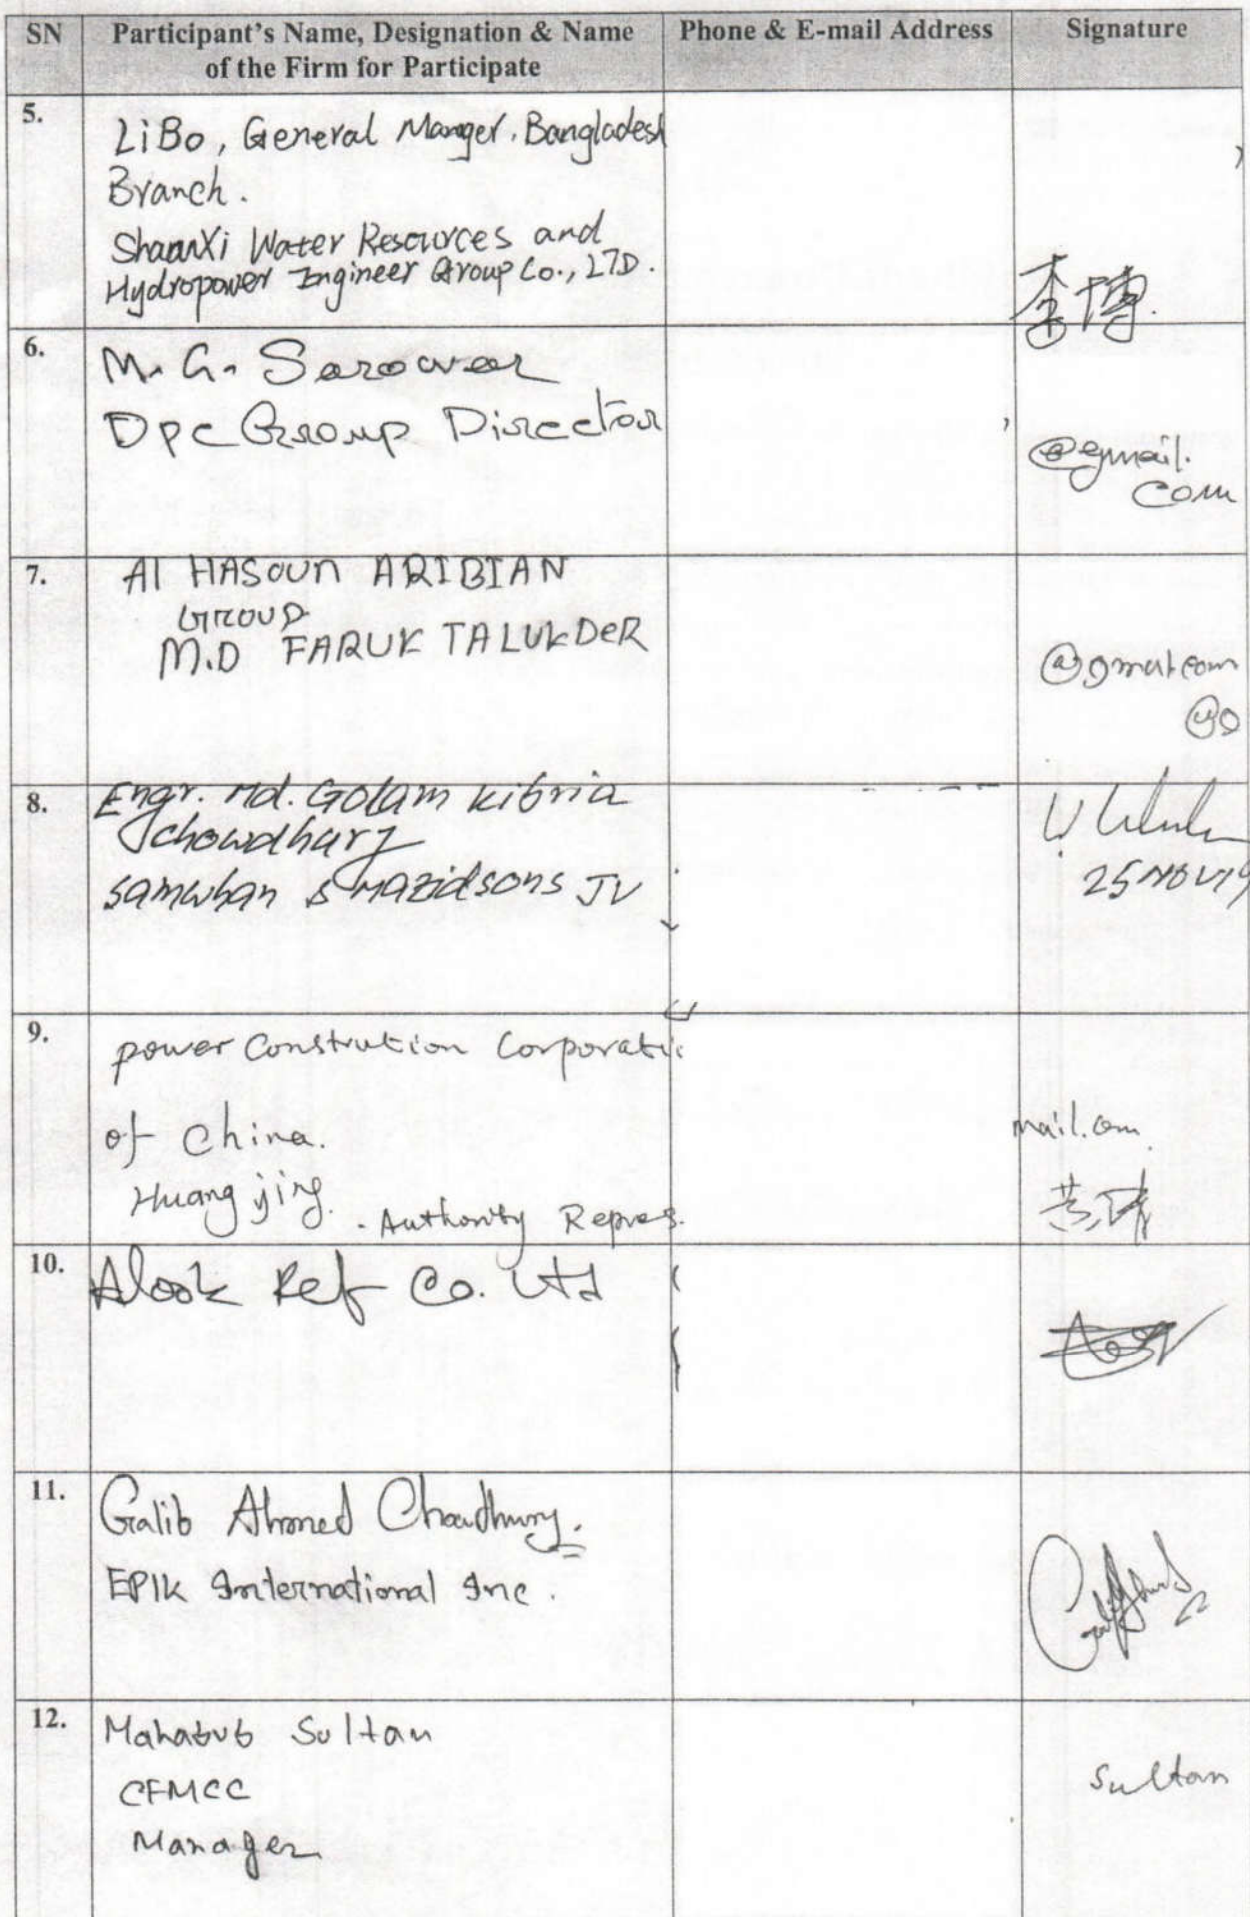 SN Participant's Name, Designation & Name of the Firm for Participate Phone & E-mail Address Signature
5.
LiBo, General Manger, Bangladesh
Branch.
ShaanXi Water Resources and
Hydropower Engineer Group Co., LTD.
李博.
6.
M. G. Sarowar
Dpc Group Director
@gmail.
com
7.
Al HASOUN ARIBIAN
GROUP
M.D FARUK TALUKDER
@gmail.com
8.
Engr. Md. Golam Kibria
Chowdhury
Samwhan & Mazidsons JV
25 NOV 19
9.
power Constrution Corporati
of China.
Huang jing. . Authority Repres.
mail.com
黄
10.
Alook Ref Co. Ltd
11.
Galib Ahmed Choudhury.
EPIK International Inc.
12.
Mahabub Sultan
CFMCC
Manager
Sultan